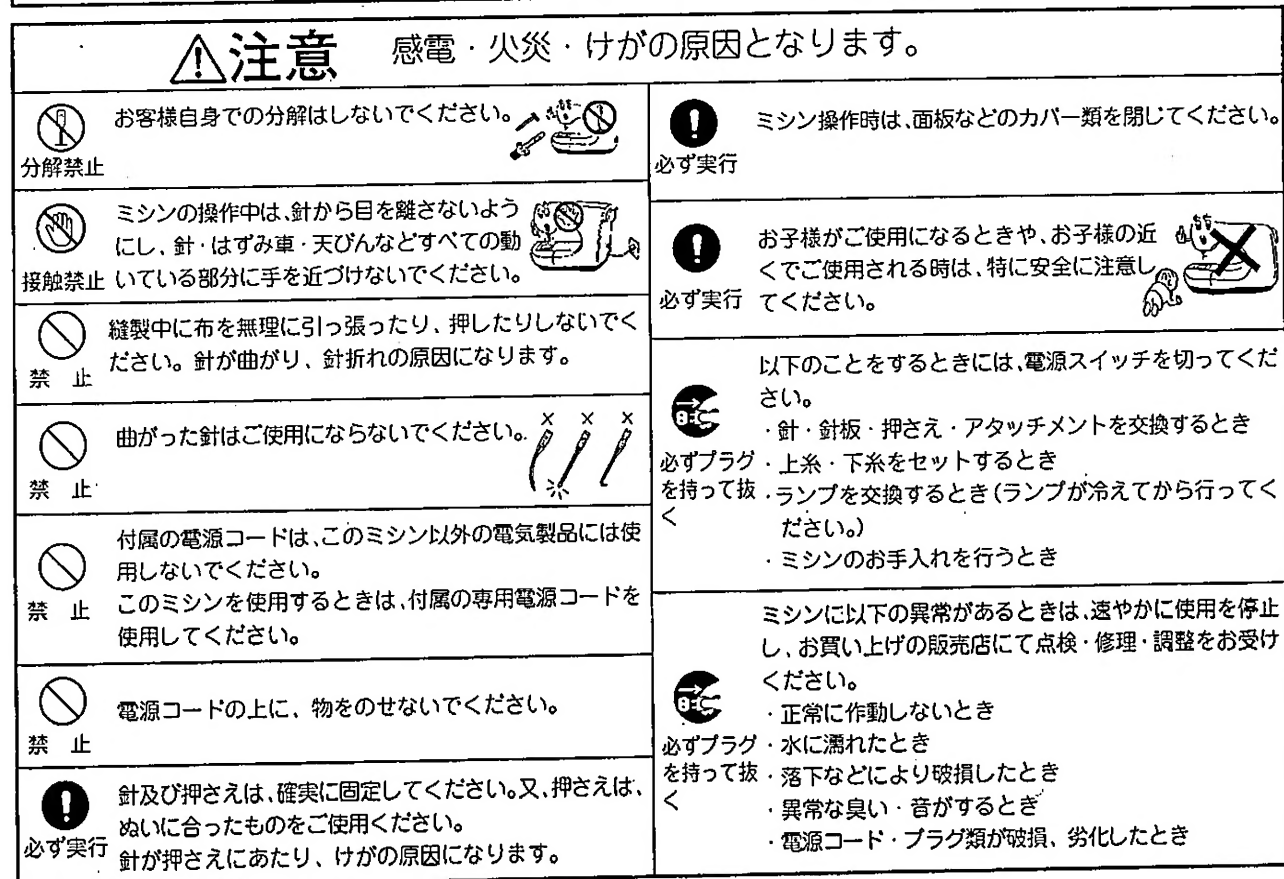 ⚠注意　感電・火災・けがの原因となります。
分解禁止
お客様自身での分解はしないでください。
接触禁止
ミシンの操作中は、針から目を離さないよう
にし、針・はずみ車・天びんなどすべての動
いている部分に手を近づけないでください。
禁　止
縫製中に布を無理に引っ張ったり、押したりしないでく
ださい。針が曲がり、針折れの原因になります。
禁　止
曲がった針はご使用にならないでください。
× × ×
禁　止
付属の電源コードは、このミシン以外の電気製品には使
用しないでください。
このミシンを使用するときは、付属の専用電源コードを
使用してください。
禁　止
電源コードの上に、物をのせないでください。
必ず実行
針及び押さえは、確実に固定してください。又、押さえは、
ぬいに合ったものをご使用ください。
針が押さえにあたり、けがの原因になります。
必ず実行
ミシン操作時は、面板などのカバー類を閉じてください。
必ず実行
お子様がご使用になるときや、お子様の近
くでご使用される時は、特に安全に注意し
てください。
必ずプラグ
を持って抜
く
以下のことをするときには、電源スイッチを切ってくだ
さい。
・針・針板・押さえ・アタッチメントを交換するとき
・上糸・下糸をセットするとき
・ランプを交換するとき(ランプが冷えてから行ってく
ださい。)
・ミシンのお手入れを行うとき
必ずプラグ
を持って抜
く
ミシンに以下の異常があるときは、速やかに使用を停止
し、お買い上げの販売店にて点検・修理・調整をお受け
ください。
・正常に作動しないとき
・水に濡れたとき
・落下などにより破損したとき
・異常な臭い・音がするとき
・電源コード・プラグ類が破損、劣化したとき